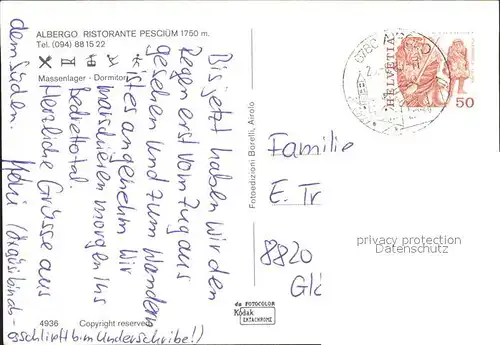 ALBERGO RISTORANTE PESCIÜM 1750 m.
Tel. (094) 88 15 22
Massenlager - Dormitori
Bis jetzt haben wir den
Regen erst vom Zug aus
gesehen und zum Wandern
ist es angenehm. Wir
marschieren morgen ins
Bedrettotal
Herzliche Grüsse aus
dem Süden.
4936
Copyright reserved
schlirft bim Underschribe!)
Fotoedizioni Borelli, Airolo
da FOTOCOLOR
Kodak
EKTACHROME
HELVETIA
50
Familie
E. Tr
8820
privacy protection
Datenschutz